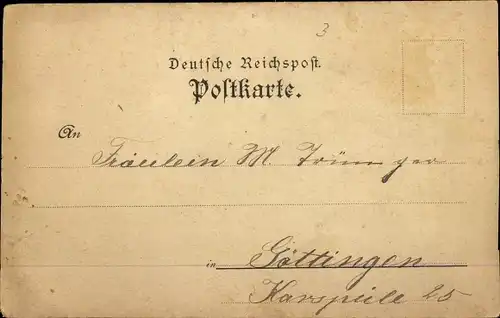 3
Deutsche Reichspost.
Postkarte.
An
Fräulein M.
in Göttingen
Karspüle 25